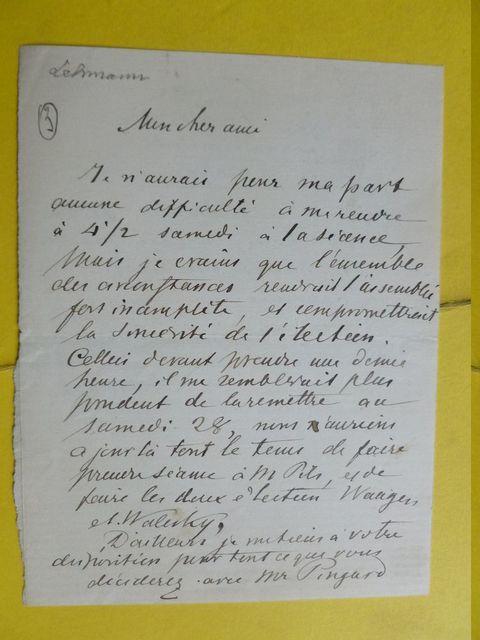 Lehmann
Mon cher ami
Je n'aurais pour ma part
aucune difficulté à me rendre
à 4 1/2 samedi à la séance,
Mais je crains que l'ensemble
des circonstances rendrait l'assemblée
fort incomplète, et compromettrait
la sincérité de l'élection.
Celleci devant prendre une demie
heure, il me semblerait plus
prudent de la remettre au
samedi 28, nous n'aurions
a jour là tout le tems de faire
prendre séance à Mr Pils, et de
faire les deux élection Waagen
et Walesky,
D'ailleurs je me tiens à votre
disposition pour tout ce que vous
déciderez avec Mr Pingard